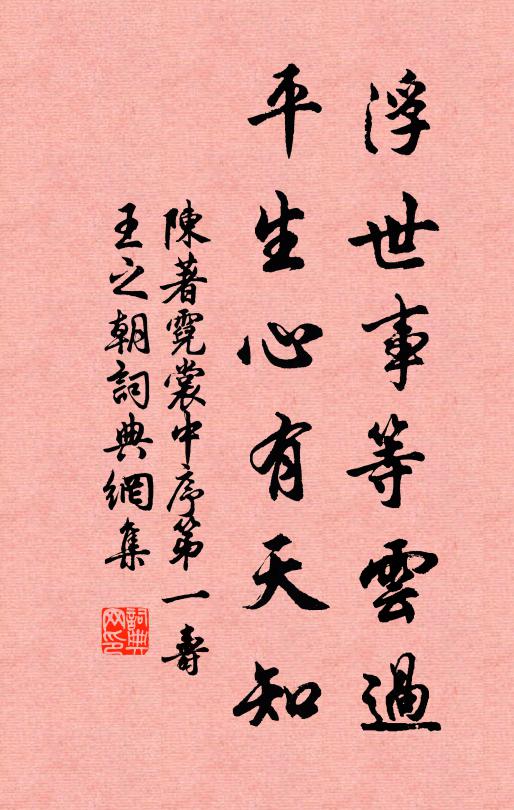 浮世事等雲過
平生心有天知
陳著霓裳中序第一壽
王之朝詞典網集
詞典网印